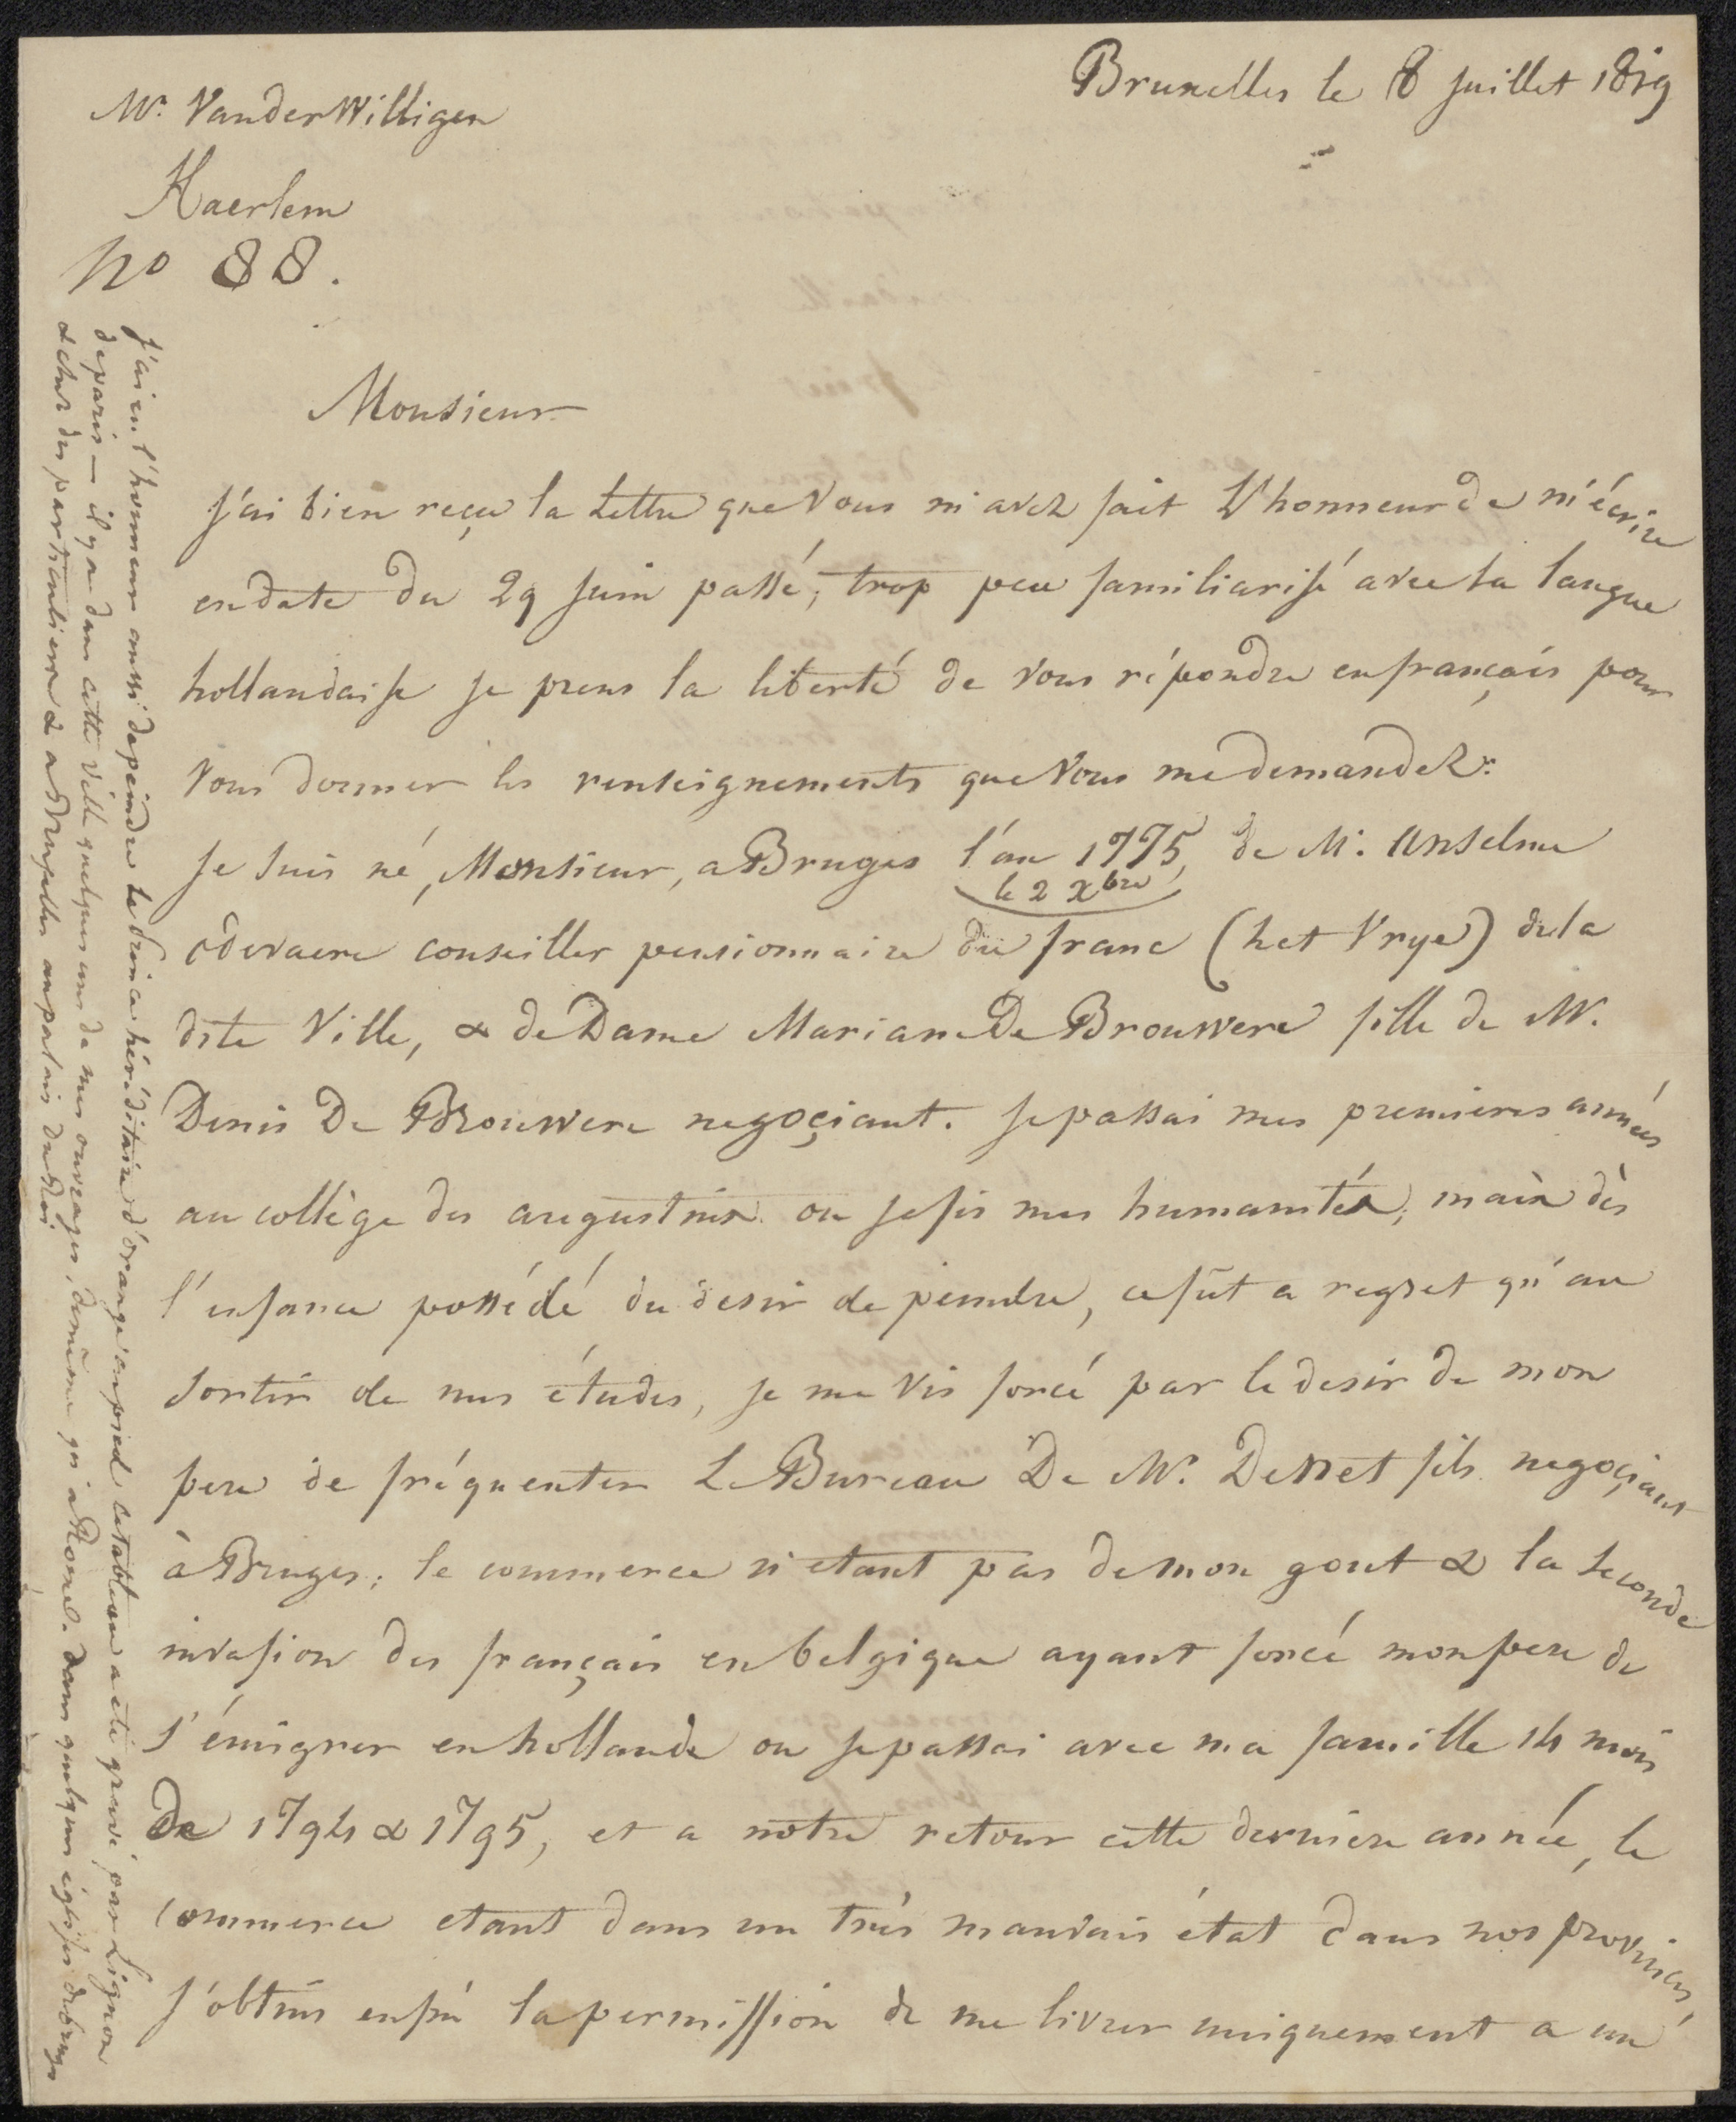 Bruxelles le 8 juillet 1819
Mr. VanderWilligen
Haerlem
No 88.
Monsieur
j'ai bien reçu la Lettre que Vous m'avez fait L'honneur de m'écrire
en date du 29 juin passé; trop peu familiarisé avec la langue
hollandaise je prens la liberté de vous répondre en français pour
Vous donner les renseignements que Vous me demandez:
je suis né, Monsieur, a Bruges l'an 1775, de Mr. Anselme
le 2 Xbre
odevaere conseiller pensionnaire du franc (het Vrye) de la
dite Ville, & de Dame Mariane De Brouwere fille de Mr.
Denis De Brouwere negoçiant. je passai mes premieres années
au collège des augustins ou je fis mes humanités; mais dès
l'enfance possédé du desir de peindre, ce fût a regret qu'au
sortir de mes études, je me vis forcé par le desir de mon
pere de fréquenter Le Bureau De Mr. Denet fils negoçiant
á Bruges; le commerce n'etant pas de mon gout & la seconde
invasion des français en belgique ayant forcé mon pere de
s'émigrer en hollande ou je passai avec ma famille 14 mois
De 1794 & 1795, et a notre retour cette derniere année, le
commerce etant dans un très mauvais état dans nos provinces,
j'obtins enfin la permission de me livrer uniquement a un
j'ai eu l'honneur aussi de peindre le Prince héréditaire d'orange en pied ce tableau a été gravé par Lignon
de paris — il y a dans cette Ville quelques uns de mes ouvrages, de même qu'a Rome. dans quelques églises de bruges
& chez des particuliers & a Bruxelles au palais du Roi.